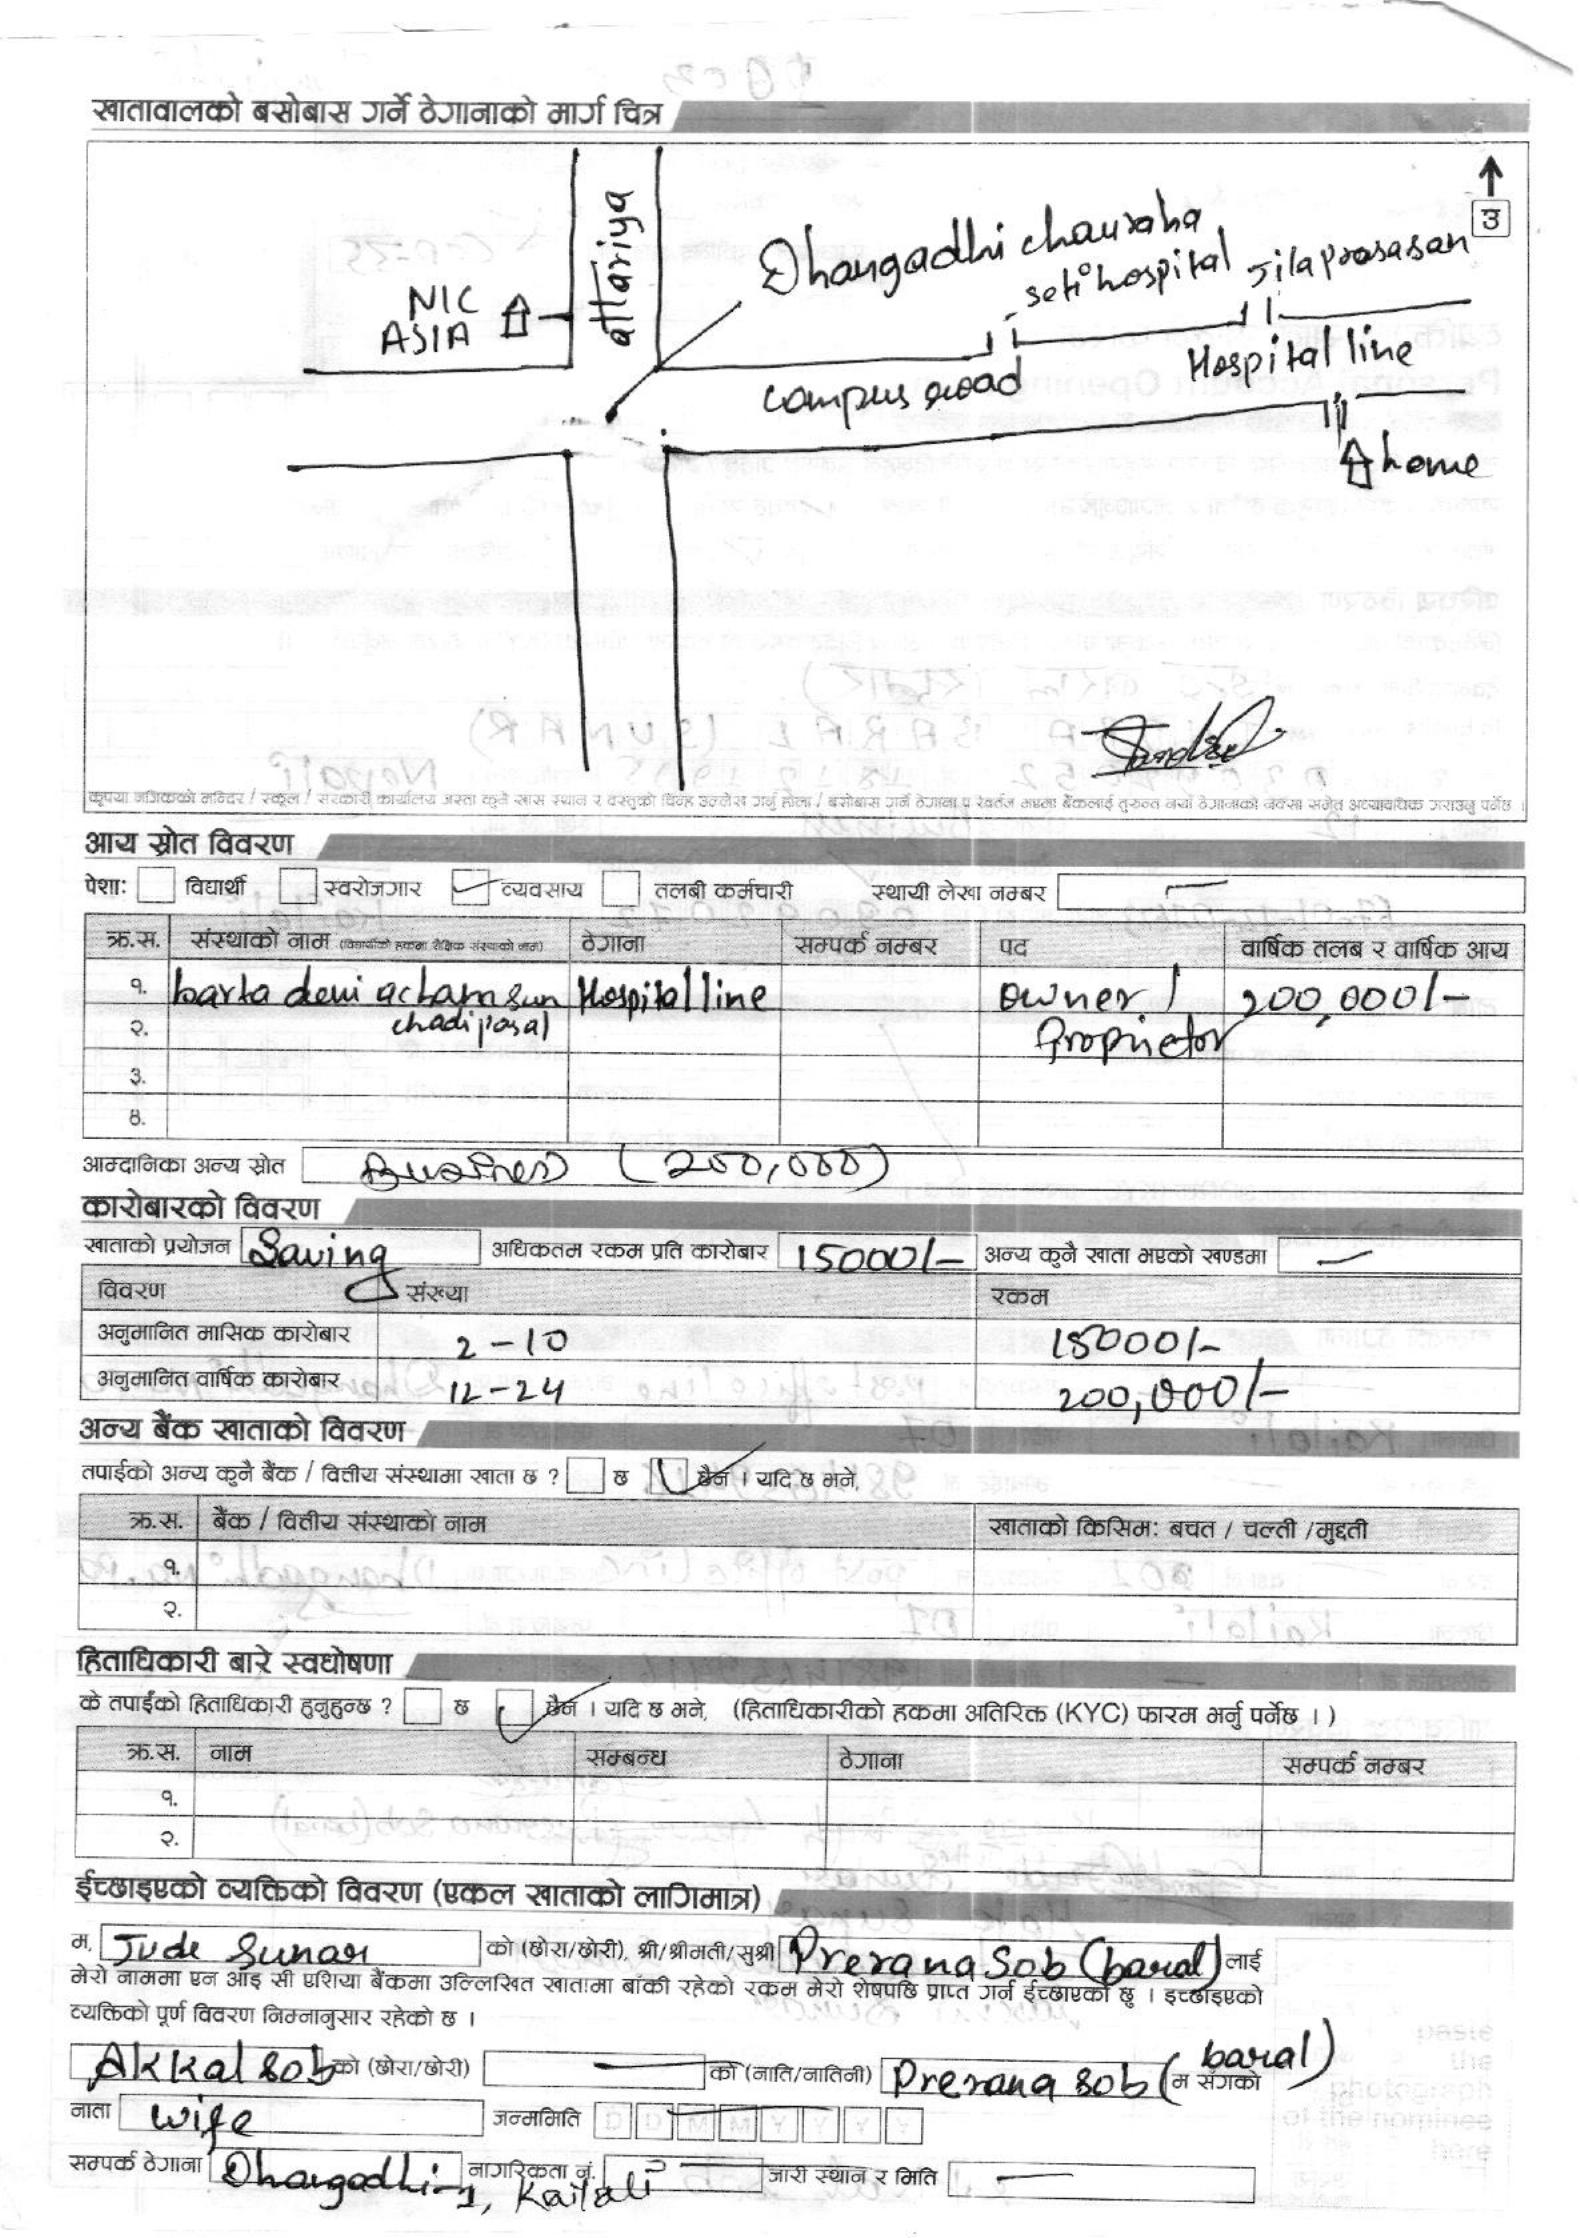 खातावालको बसोबास गर्ने ठेगानाको मार्ग चित्र
उ
attariya
NIC ASIA
Dhangadhi chauraha
seti hospital
Jilaprasasan
campus road
Hospital line
home
कृपया नजिकको मन्दिर / स्कूल / सरकारी कार्यालय जस्ता कुनै खास स्थान र वस्तुको चिन्ह उल्लेख गर्नु होला / बसोबास गर्ने ठेगाना परिवर्तन भएमा बैंकलाई तुरुन्त नयाँ ठेगानाको नक्सा समेत अध्यावधिक गराउनु पर्नेछ ।
आय स्रोत विवरण
पेशा: विद्यार्थी स्वरोजगार व्यवसाय तलबी कर्मचारी स्थायी लेखा नम्बर —
क्र.स. संस्थाको नाम (विद्यार्थीको हकमा शैक्षिक संस्थाको नाम) ठेगाना सम्पर्क नम्बर पद वार्षिक तलब र वार्षिक आय
१. barta devi acham sun Hospital line owner / 200,000/-
२. chadi pasal Proprietor
३.
४.
आम्दानिका अन्य स्रोत Business (200,000)
कारोबारको विवरण
खाताको प्रयोजन Saving अधिकतम रकम प्रति कारोबार 15000/- अन्य कुनै खाता भएको खण्डमा —
विवरण संख्या रकम
अनुमानित मासिक कारोबार 2-10 15000/-
अनुमानित वार्षिक कारोबार 12-24 200,000/-
अन्य बैंक खाताको विवरण
तपाईको अन्य कुनै बैंक / वित्तीय संस्थामा खाता छ ? छ छैन । यदि छ भने,
क्र.स. बैंक / वित्तीय संस्थाको नाम खाताको किसिम: बचत / चल्ती /मुद्दती
१.
२.
हिताधिकारी बारे स्वघोषणा
के तपाईंको हिताधिकारी हुनुहुन्छ ? छ छैन । यदि छ भने, (हिताधिकारीको हकमा अतिरिक्त (KYC) फारम भर्नु पर्नेछ । )
क्र.स. नाम सम्बन्ध ठेगाना सम्पर्क नम्बर
१.
२.
ईच्छाइएको व्यक्तिको विवरण (एकल खाताको लागिमात्र)
म, Jude Sunar को (छोरा/छोरी), श्री/श्रीमती/सुश्री Prerana Sob (baral) लाई
मेरो नाममा एन आइ सी एशिया बैंकमा उल्लिखित खातामा बाँकी रहेको रकम मेरो शेषपछि प्राप्त गर्न ईच्छाएको छु । इच्छाइएको
व्यक्तिको पूर्ण विवरण निम्नानुसार रहेको छ ।
Akkal sob को (छोरा/छोरी) — को (नाति/नातिनी) Prerana sob (baral) म सँगको
नाता wife जन्ममिति D D M M Y Y Y Y
सम्पर्क ठेगाना Dhangadhi-1, Kailali नागरिकता नं. — जारी स्थान र मिति —